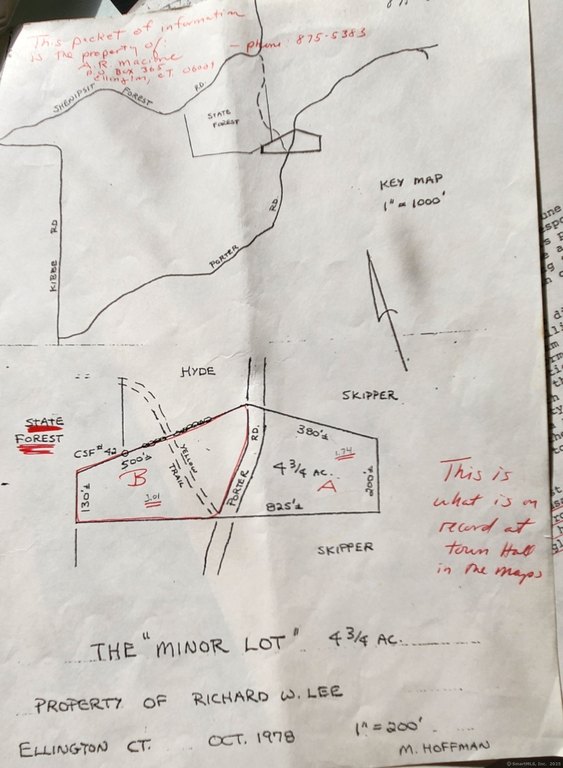 This packet of information
is the property of:
A R Macione - phone: 875-5383
P.O. Box 365
Ellington, CT 06029
SHENIPSIT FOREST RD.
STATE
FOREST
KEY MAP
1" = 1000'
KIBBE RD
PORTER RD.
HYDE
SKIPPER
STATE
FOREST
CSF# 42
500'±
380'±
1.74
B
YELLOW
TRAIL
PORTER RD.
4 3/4 AC.
A
130'±
3.01
825'±
200'±
SKIPPER
This is
what is on
record at
town Hall
in the maps
THE "MINOR LOT" 4 3/4 AC.
PROPERTY OF RICHARD W. LEE
ELLINGTON CT. OCT. 1978 1" = 200'
M. HOFFMAN
© SmartMLS, Inc. 2025